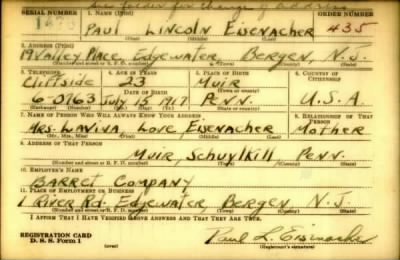 See folder for change of address
SERIAL NUMBER 1. NAME (Print) ORDER NUMBER
PAUL LINCOLN EISENACHER 435
(First) (Middle) (Last)
2. ADDRESS (Print)
19 VALLEY PLACE, EDGEWATER, BERGEN, N.J.
(Number and street or R. F. D. number) (Town) (County) (State)
3. TELEPHONE 4. AGE IN YEARS 5. PLACE OF BIRTH 6. COUNTRY OF CITIZENSHIP
Cliffside 23 MUIR
DATE OF BIRTH
6-0763 July 14, 1917 PENN. U.S.A.
(Exchange) (Number) (Mo.) (Day) (Yr.) (State or country)
7. NAME OF PERSON WHO WILL ALWAYS KNOW YOUR ADDRESS 8. RELATIONSHIP OF THAT PERSON
MRS. LAVINA LOVE EISENACHER MOTHER
(Mr., Mrs., Miss) (First) (Middle) (Last)
9. ADDRESS OF THAT PERSON
MUIR, SCHUYLKILL PENN.
(Number and street or R. F. D. number) (Town) (County) (State)
10. EMPLOYER'S NAME
BARRET COMPANY
11. PLACE OF EMPLOYMENT OR BUSINESS
1 RIVER RD. EDGEWATER, BERGEN N.J.
(Number and street or R. F. D. number) (Town) (County) (State)
I AFFIRM THAT I HAVE VERIFIED ABOVE ANSWERS AND THAT THEY ARE TRUE.
REGISTRATION CARD
D. S. S. Form 1 (over) Paul L. Eisenacher
(Registrant's signature)